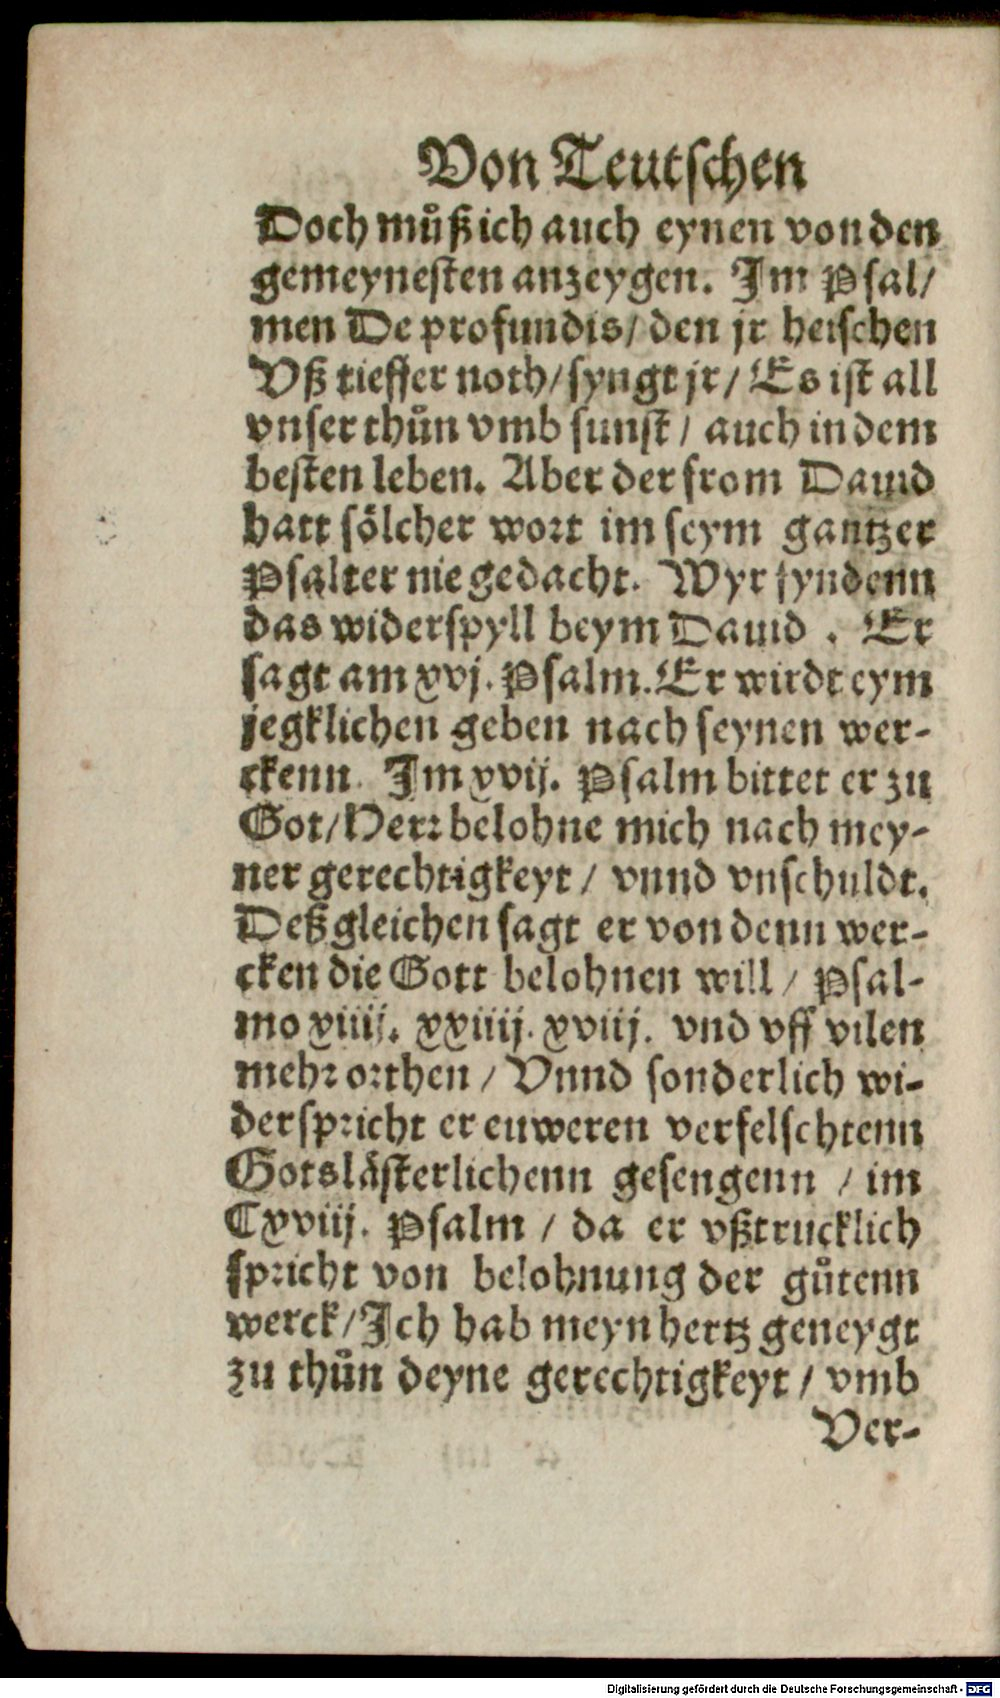 Von Teutschen
Doch můß ich auch eynen von den
gemeynesten anzeygen. Im Psal/
men De profundis/ den jr heischen
Vß tieffer noth/ syngt jr/ Es ist all
vnser thůn vmb sunst/ auch in dem
besten leben. Aber der from Dauid
hatt sölcher wort im seym gantzer
Psalter nie gedacht. Wyr fyndenn
das widerspyll beym Dauid. Er
sagt am xvj. Psalm. Er wirdt eym
jegklichen geben nach seynen wer-
ckenn. Im xvij. Psalm bittet er zu
Got/ Herr belohne mich nach mey-
ner gerechtigkeyt/ vnnd vnschuldt.
Deßgleichen sagt er von denn wer-
cken die Gott belohnen will/ Psal-
mo xiiij. xxiiij. xviij. vnd vff vilen
mehr orthen/ Vnnd sonderlich wi-
derspricht er euweren verfelschtenn
Gotslästerlichenn gesengenn/ im
Cxviij. Psalm/ da er vßtrucklich
spricht von belohnung der gůtenn
werck/ Ich hab meyn hertz geneygt
zu thůn deyne gerechtigkeyt/ vmb
Ver-
Digitalisierung gefördert durch die Deutsche Forschungsgemeinschaft - DFG